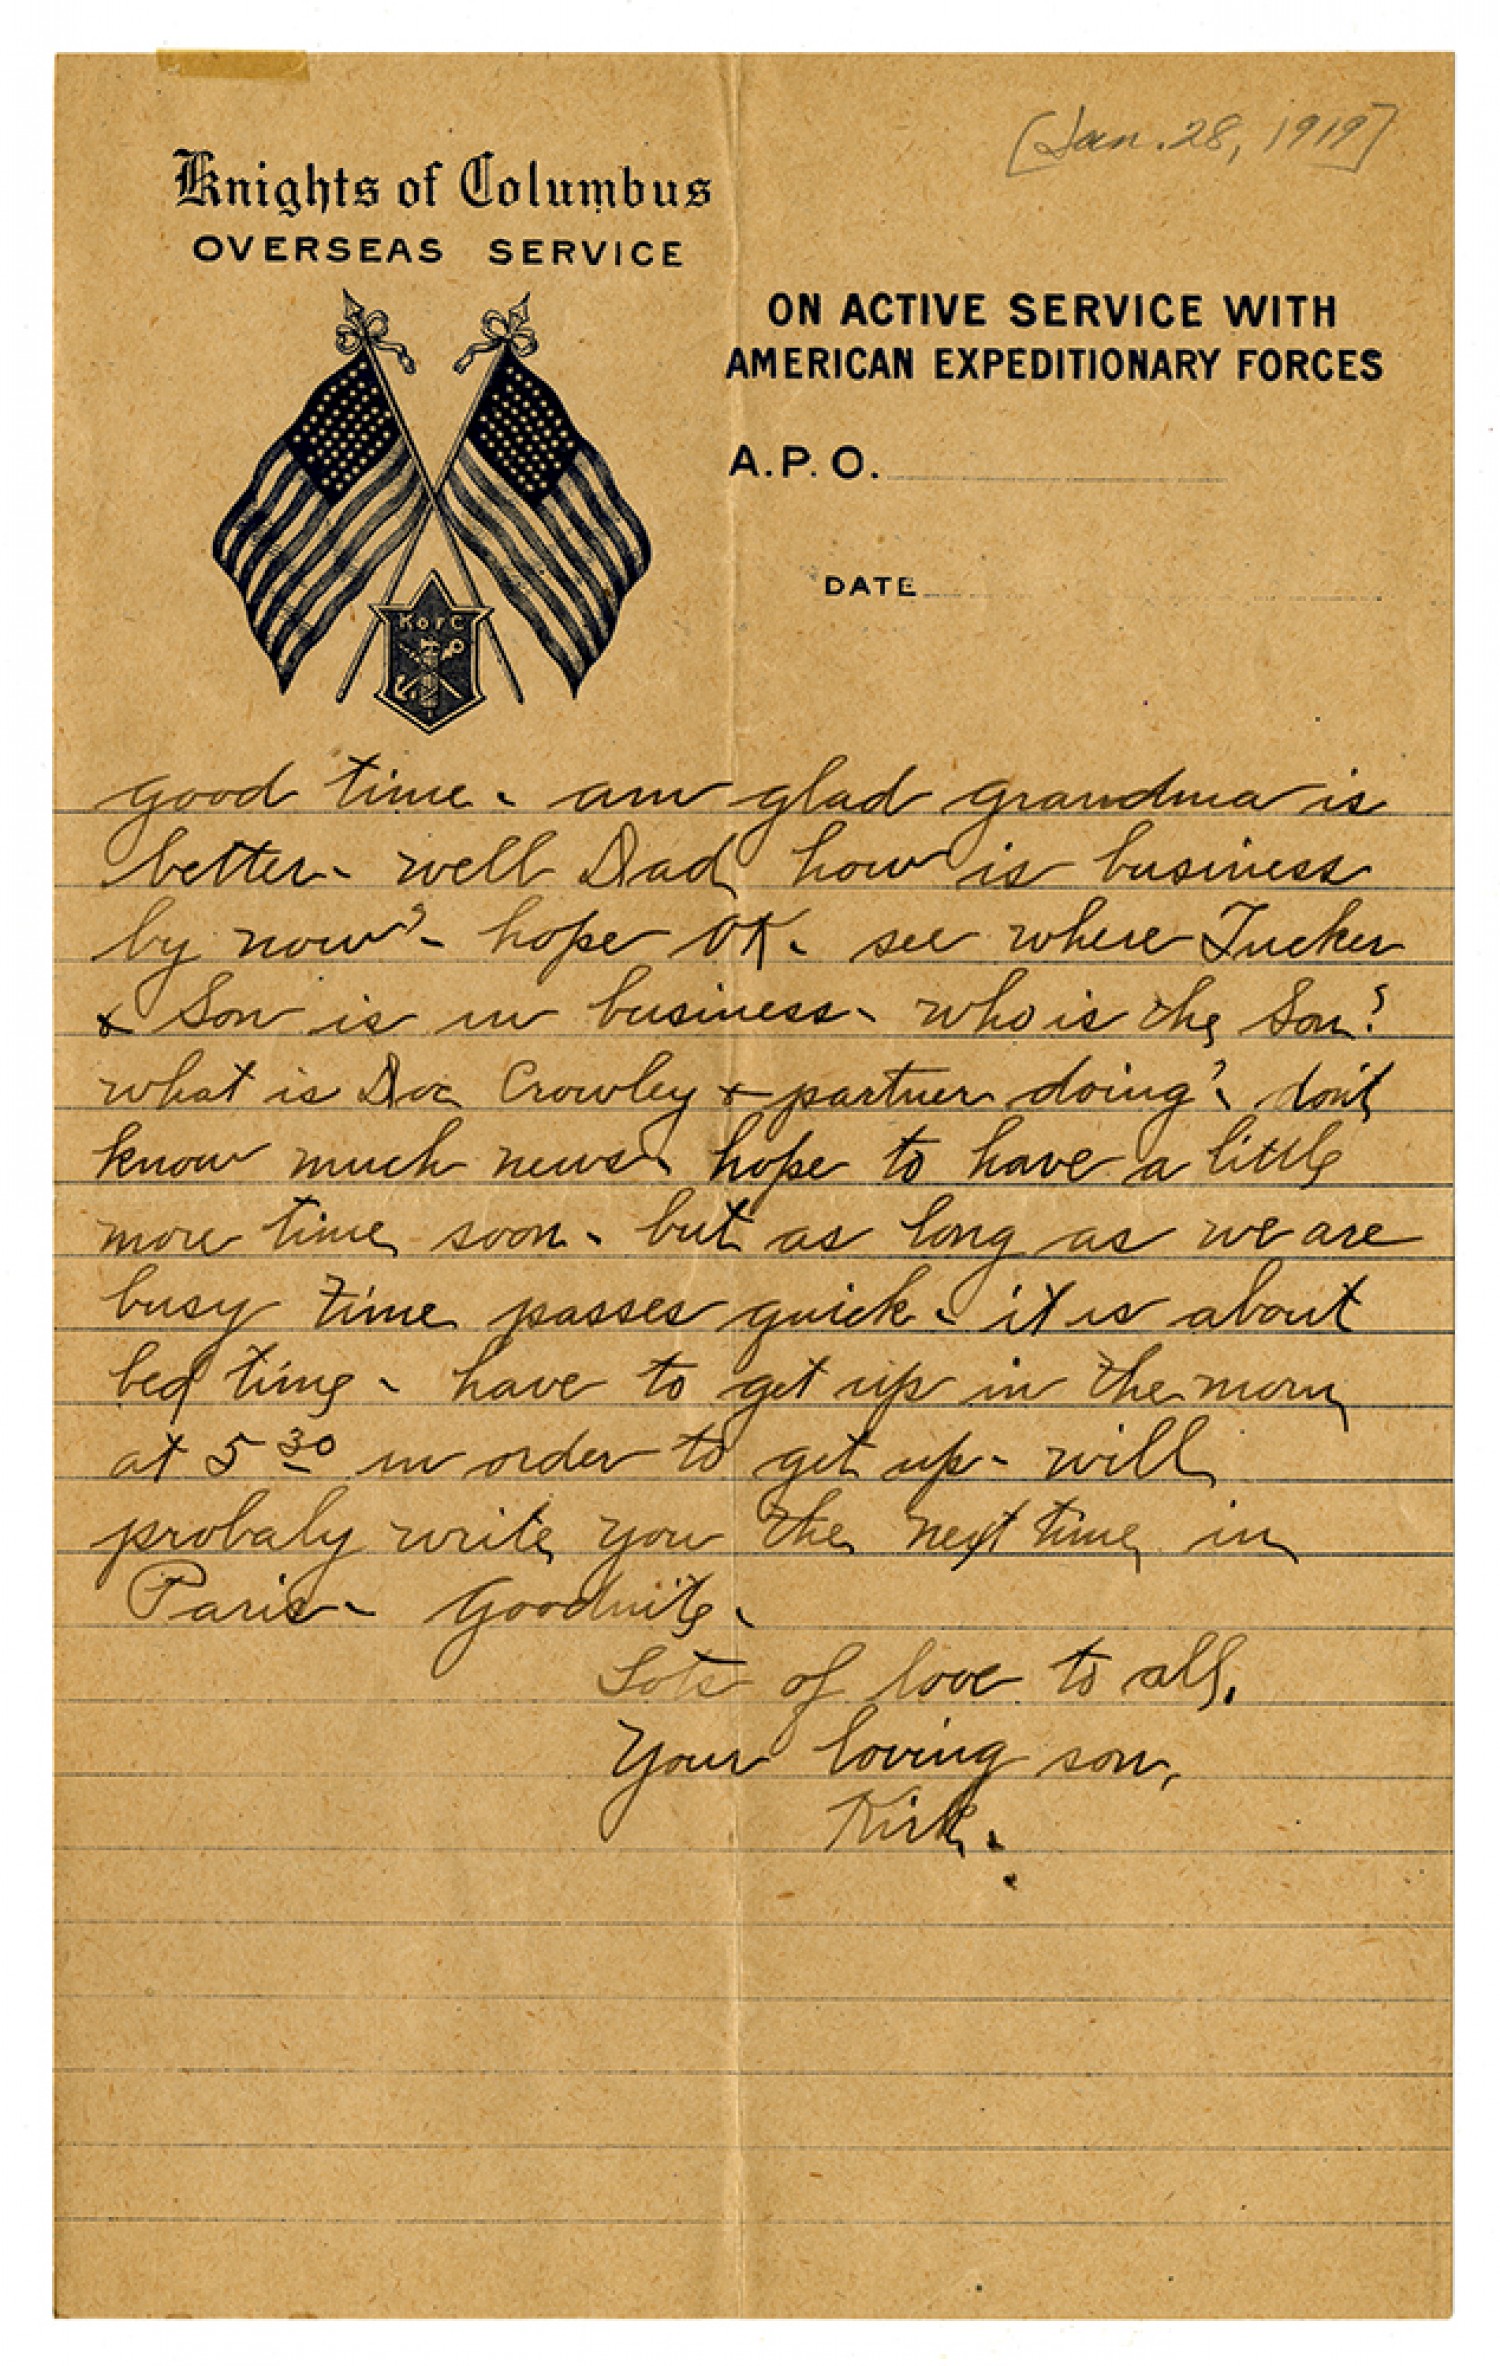 [Jan. 28, 1919]
Knights of Columbus
OVERSEAS SERVICE
ON ACTIVE SERVICE WITH
AMERICAN EXPEDITIONARY FORCES
A.P.O.
DATE
K of C
good time - am glad grandma is
better - well Dad how is business
by now? - hope OK - see where Tucker
& Son is in business - who is the Son?
what is Doc Crowley & partner doing? - don't
know much news - hope to have a little
more time soon - but as long as we are
busy time passes quick - it is about
bed time - have to get up in the morn
at 5 30 in order to get up - will
probaly write you the next time in
Paris - Goodnite -
Lots of love to all.
Your loving son,
Kirk.